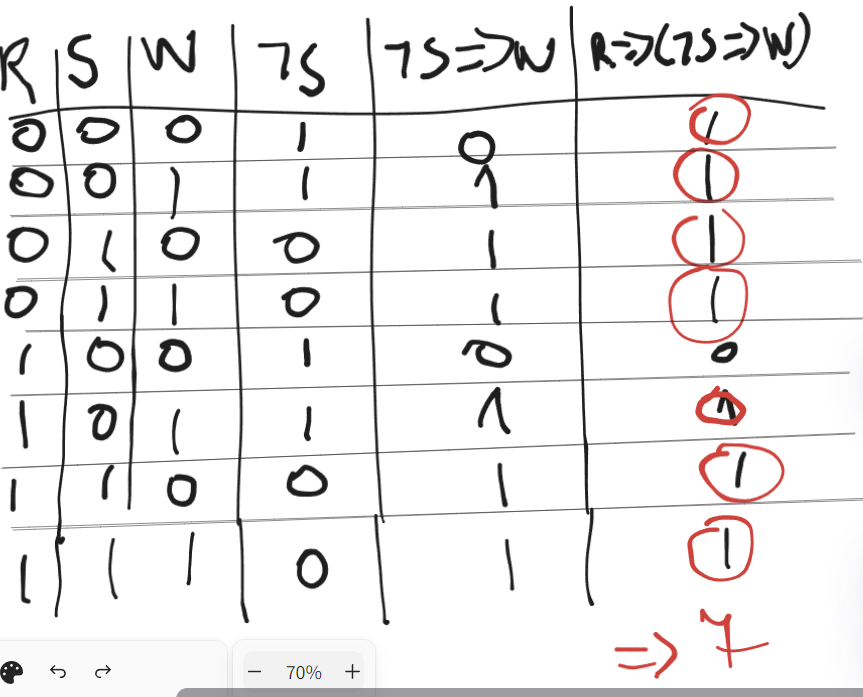 R S W ¬S ¬S=>W R=>(¬S=>W)
0 0 0 1 0 1
0 0 1 1 1 1
0 1 0 0 1 1
0 1 1 0 1 1
1 0 0 1 0 0
1 0 1 1 1 1
1 1 0 0 1 1
1 1 1 0 1 1
=> 7
− 70% +